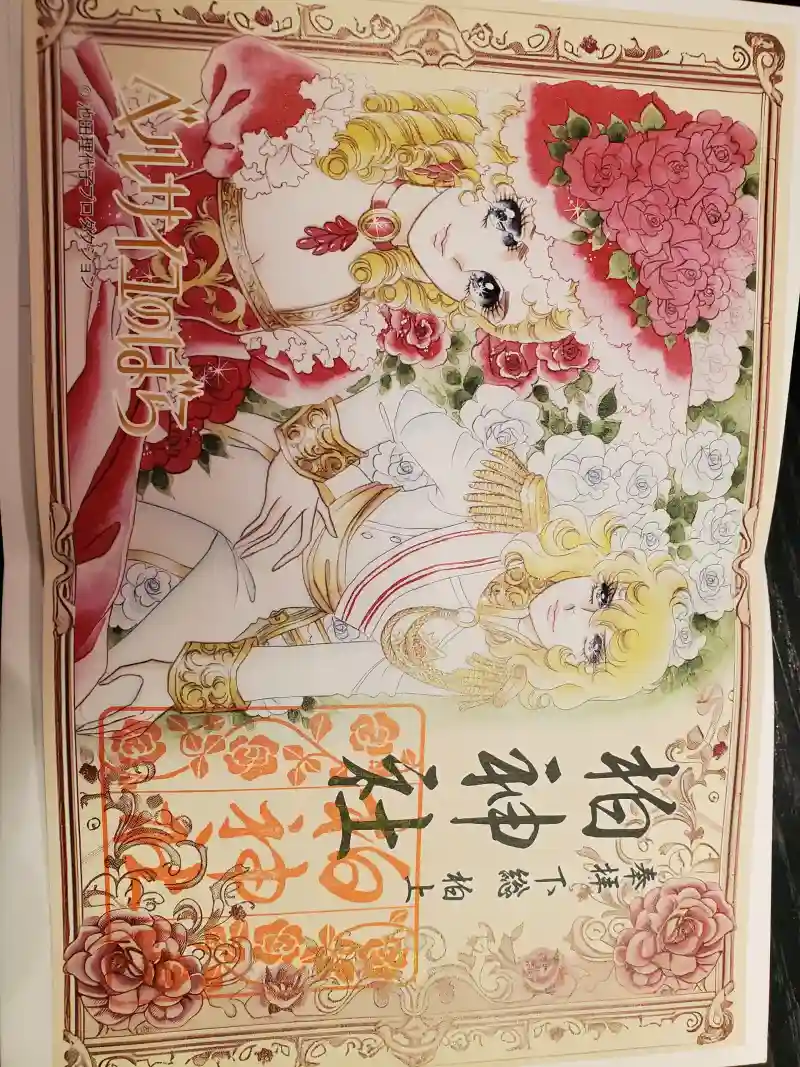 ベルサイユのばら
©池田理代子プロダクション
柏神社
奉拝
下総 柏上
柏神社